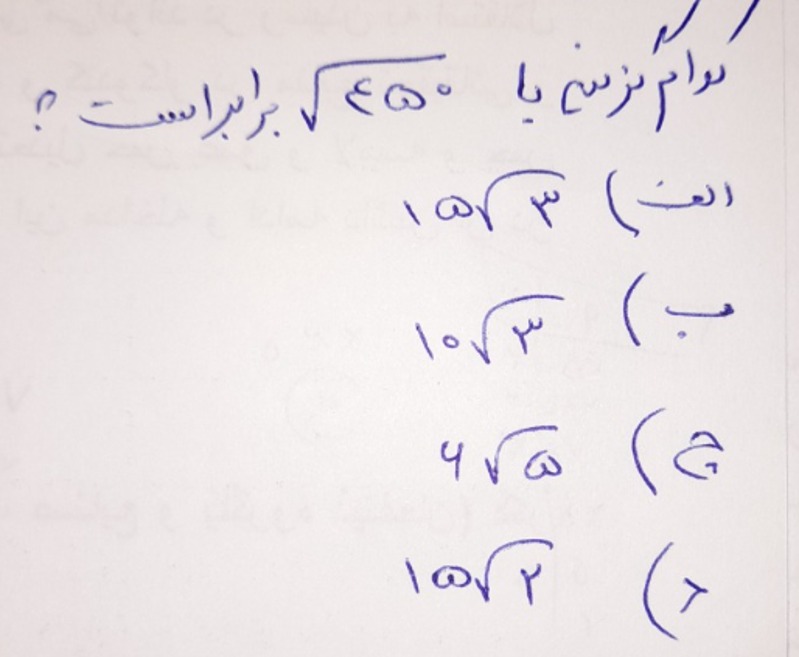 کدام گزینه با √۴۵۰ برابر است ؟
الف) ۱۵√۳
ب) ۱۰√۳
ج) ۶√۵
د) ۱۵√۲